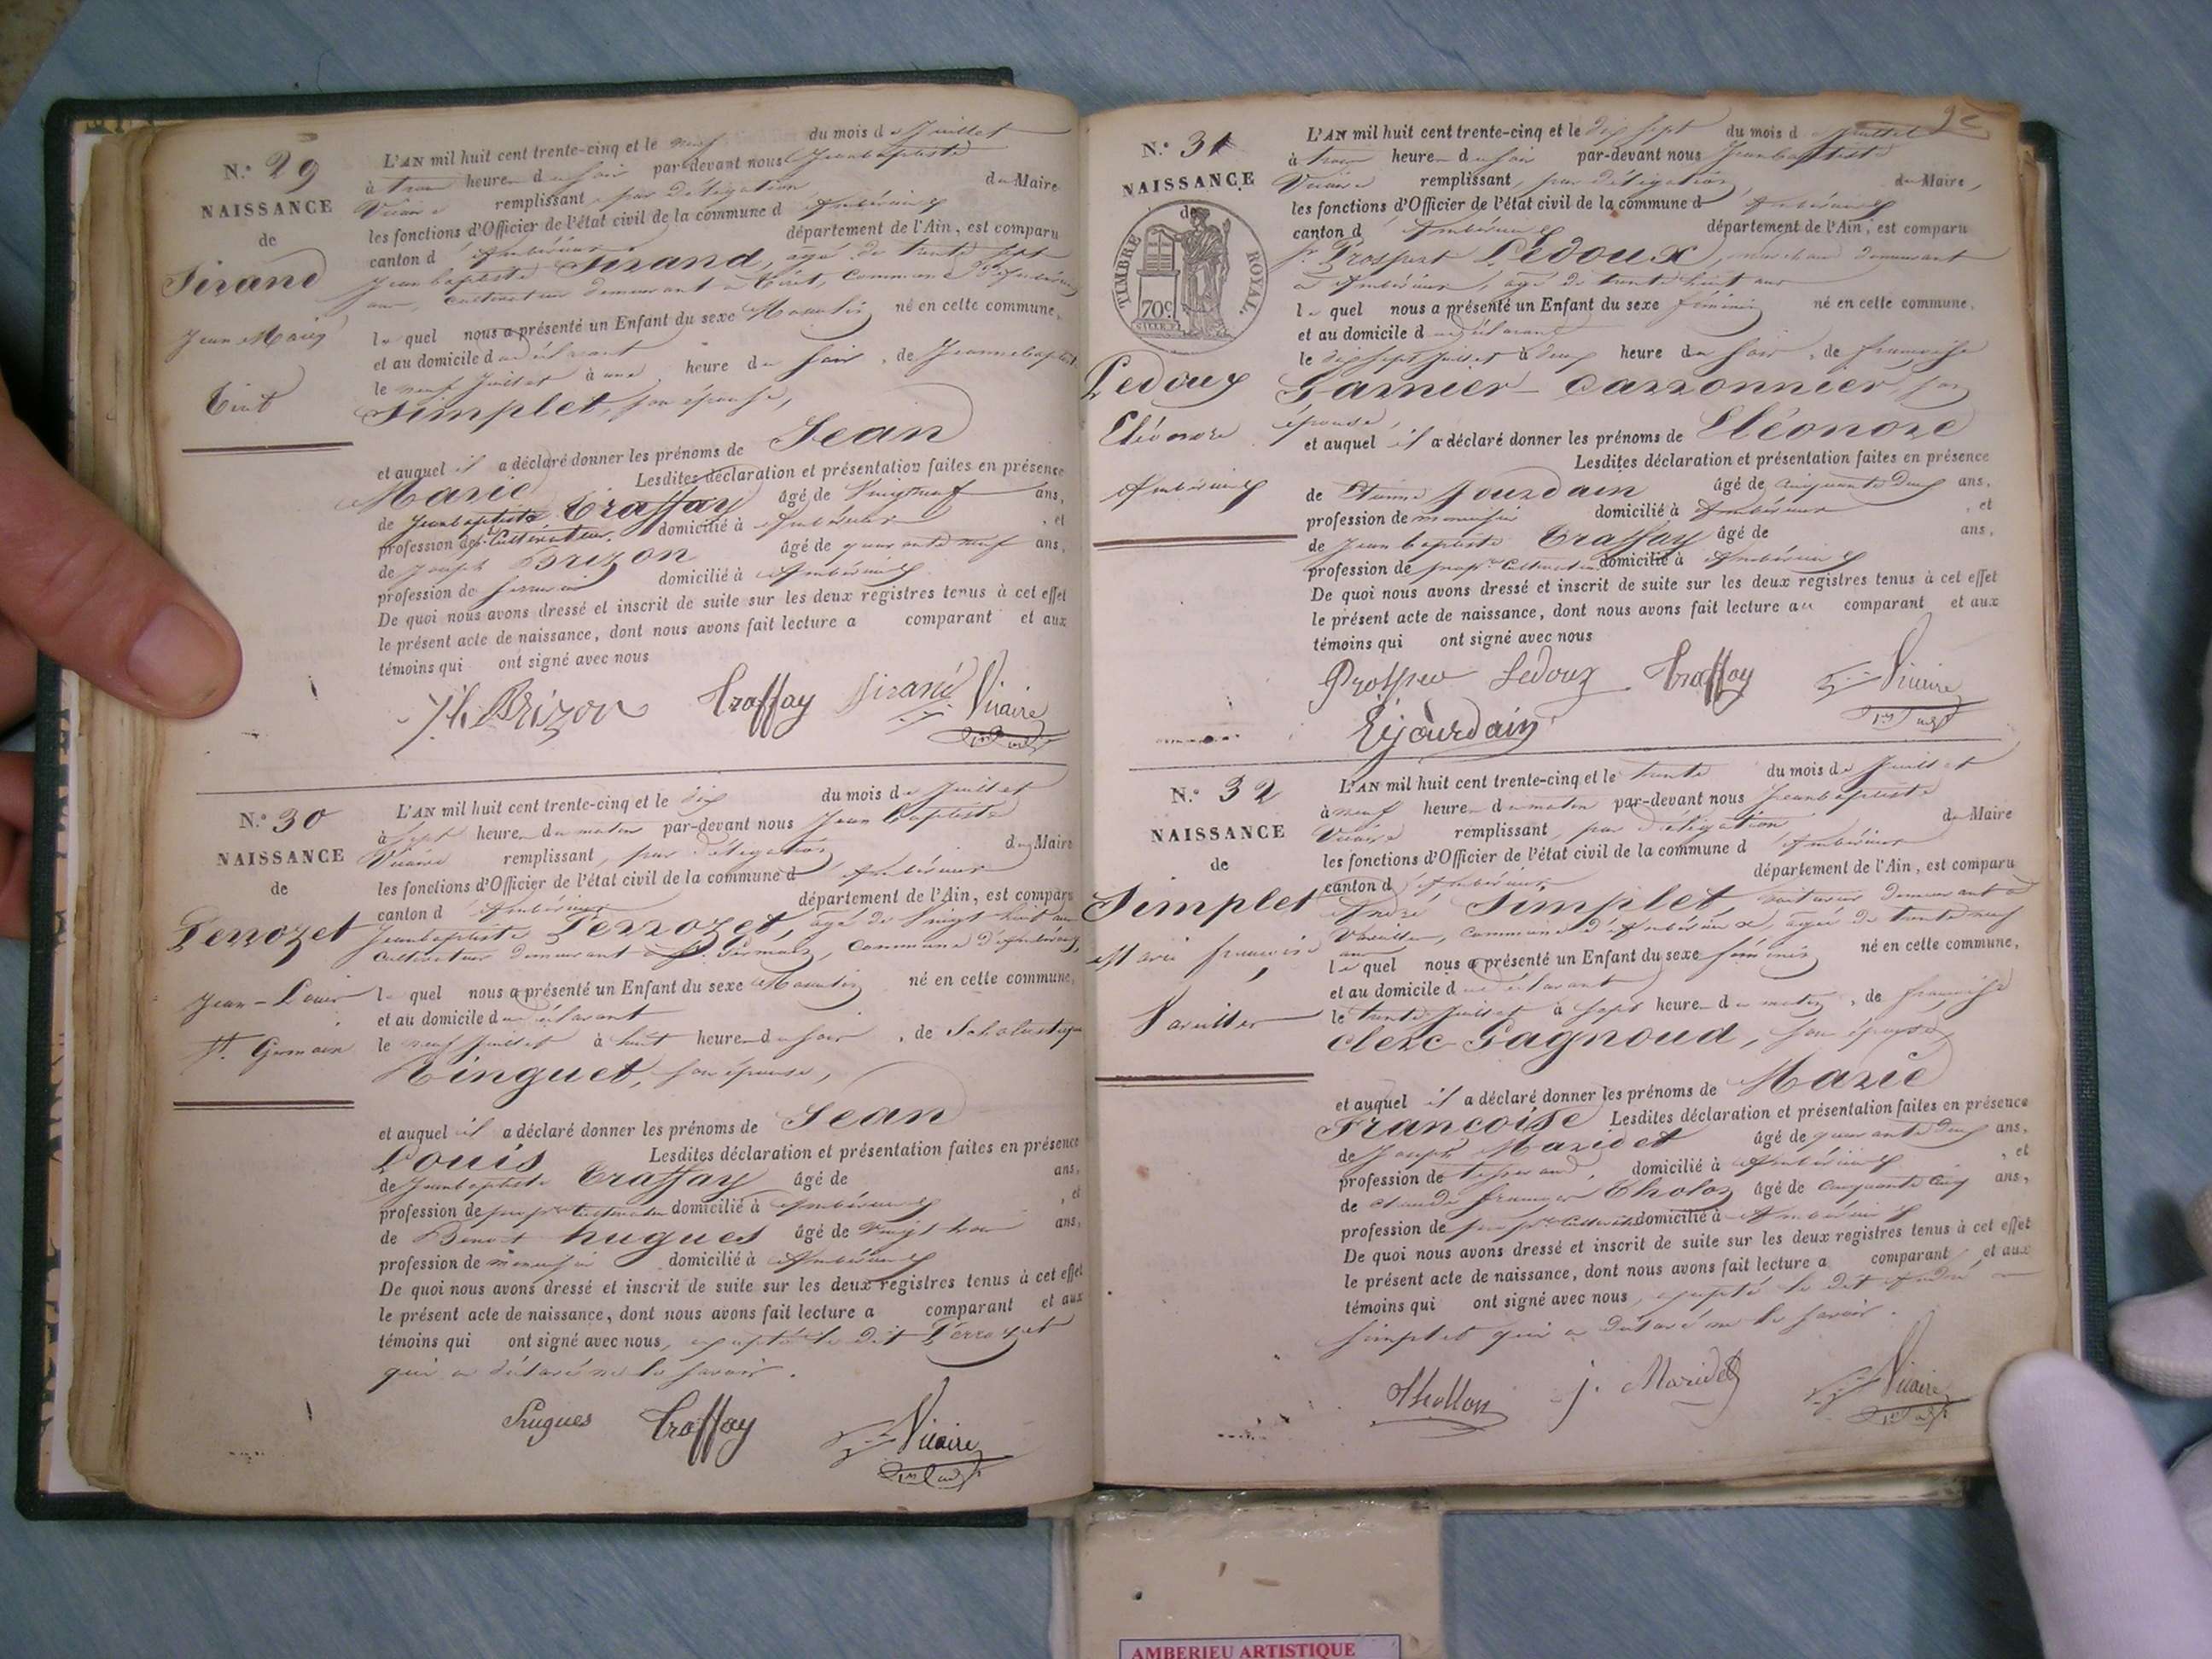 N.° 29
NAISSANCE
de
Sirand
Jean Marie
Tiret
L'AN mil huit cent trente-cinq et le neuf du mois de Juillet
à trois heures du soir par-devant nous Jeanbaptiste
Vicaire remplissant, par délégation du Maire
les fonctions d'Officier de l'état civil de la commune d'Ambérieux
canton d'Ambérieux département de l'Ain, est comparu
Jeanbaptiste Sirand, agé de trente sept
ans, cultivateur demeurant à Tiret, commune d'Ambérieux
lequel nous a présenté un Enfant du sexe Masculin né en cette commune,
et au domicile du déclarant
le neuf Juillet à une heure du soir, de Jeannebaptiste
Simplet, son épouse,
et auquel il a déclaré donner les prénoms de Jean
Marie Lesdites déclaration et présentation faites en présence
de Jeanbaptiste Traffay âgé de Vingtneuf ans,
profession de Cultivateur domicilié à Ambérieux, et
de Joseph Brizon âgé de quarante neuf ans,
profession de domicilié à Ambérieux
De quoi nous avons dressé et inscrit de suite sur les deux registres tenus à cet effet
le présent acte de naissance, dont nous avons fait lecture a comparant et aux
témoins qui ont signé avec nous
Jh Brizon Traffay Sirand Vicaire
N.° 30
NAISSANCE
de
Perrozet
Jean-Louis
St. Germain
L'AN mil huit cent trente-cinq et le dix du mois de Juillet
à sept heures du matin par-devant nous Jean baptiste
Vicaire remplissant, par délégation du Maire
les fonctions d'Officier de l'état civil de la commune d'Ambérieux
canton d'Ambérieux département de l'Ain, est comparu
Jeanbaptiste Perrozet, agé de Vingt huit ans
cultivateur demeurant à St. Germain, commune d'Ambérieux,
lequel nous a présenté un Enfant du sexe Masculin né en cette commune,
et au domicile du déclarant
le neuf Juillet à huit heures du soir, de Scholastique
Ringuet, son épouse,
et auquel il a déclaré donner les prénoms de Jean
Louis Lesdites déclaration et présentation faites en présence
de Jeanbaptiste Traffay âgé de ans,
profession de prop.re Cultivateur domicilié à Ambérieux, et
de Benoit hugues âgé de Vingt trois ans,
profession de menuisier domicilié à Ambérieux
De quoi nous avons dressé et inscrit de suite sur les deux registres tenus à cet effet
le présent acte de naissance, dont nous avons fait lecture a comparant et aux
témoins qui ont signé avec nous, excepté le dit Perrozet
qui a déclaré ne le savoir.
Hugues Traffay Vicaire
N.° 31
NAISSANCE
de
TIMBRE ROYAL.
70c
Ledoux
Eléonore
Ambérieux
L'AN mil huit cent trente-cinq et le dix sept du mois de Juillet
à trois heures du soir par-devant nous Jeanbaptiste
Vicaire remplissant, par délégation, du Maire,
les fonctions d'Officier de l'état civil de la commune d'Ambérieux
canton d'Ambérieux département de l'Ain, est comparu
Sr. Prospert Ledoux, marchand demeurant
à Ambérieux, agé de trente huit ans
lequel nous a présenté un Enfant du sexe féminin né en cette commune,
et au domicile du déclarant
le dix sept Juillet à deux heure du soir, de françoise
Garnier-Carronnier, son
épouse,
et auquel il a déclaré donner les prénoms de Eléonore
Lesdites déclaration et présentation faites en présence
de Etienne Jourdain âgé de cinquante deux ans,
profession de menuisier domicilié à Ambérieux, et
de Jean baptiste Traffay âgé de ans,
profession de prop.re Cultivateur domicilié à Ambérieux
De quoi nous avons dressé et inscrit de suite sur les deux registres tenus à cet effet
le présent acte de naissance, dont nous avons fait lecture au comparant et aux
témoins qui ont signé avec nous
Prosper Ledoux Traffay Vicaire
E. jourdain
N.° 32
NAISSANCE
de
Simplet
Marie françoise
Vareilles
L'AN mil huit cent trente-cinq et le trente du mois de Juillet
à neuf heures du matin par-devant nous Jeanbaptiste
Vicaire remplissant, par délégation du Maire
les fonctions d'Officier de l'état civil de la commune d'Ambérieux
canton d'Ambérieux département de l'Ain, est comparu
André Simplet, demeurant à
Vareilles, commune d'Ambérieux, agé de trente neuf
ans
lequel nous a présenté un Enfant du sexe féminin né en cette commune,
et au domicile du déclarant
le trente Juillet à sept heures du matin, de françoise
clerc-Gagnoud, son épouse,
et auquel il a déclaré donner les prénoms de Marie
Francoise Lesdites déclaration et présentation faites en présence
de Joseph Maridet âgé de quarante deux ans,
profession de tisserand domicilié à Ambérieux, et
de claude françois Tholon âgé de cinquante cinq ans,
profession de prop.re Cultivateur domicilié à Ambérieux
De quoi nous avons dressé et inscrit de suite sur les deux registres tenus à cet effet
le présent acte de naissance, dont nous avons fait lecture a comparant, et aux
témoins qui ont signé avec nous, excepté le dit André
Simplet qui a déclaré ne le savoir.
Thollon j. Maridet Vicaire
AMBERIEU ARTISTIQUE